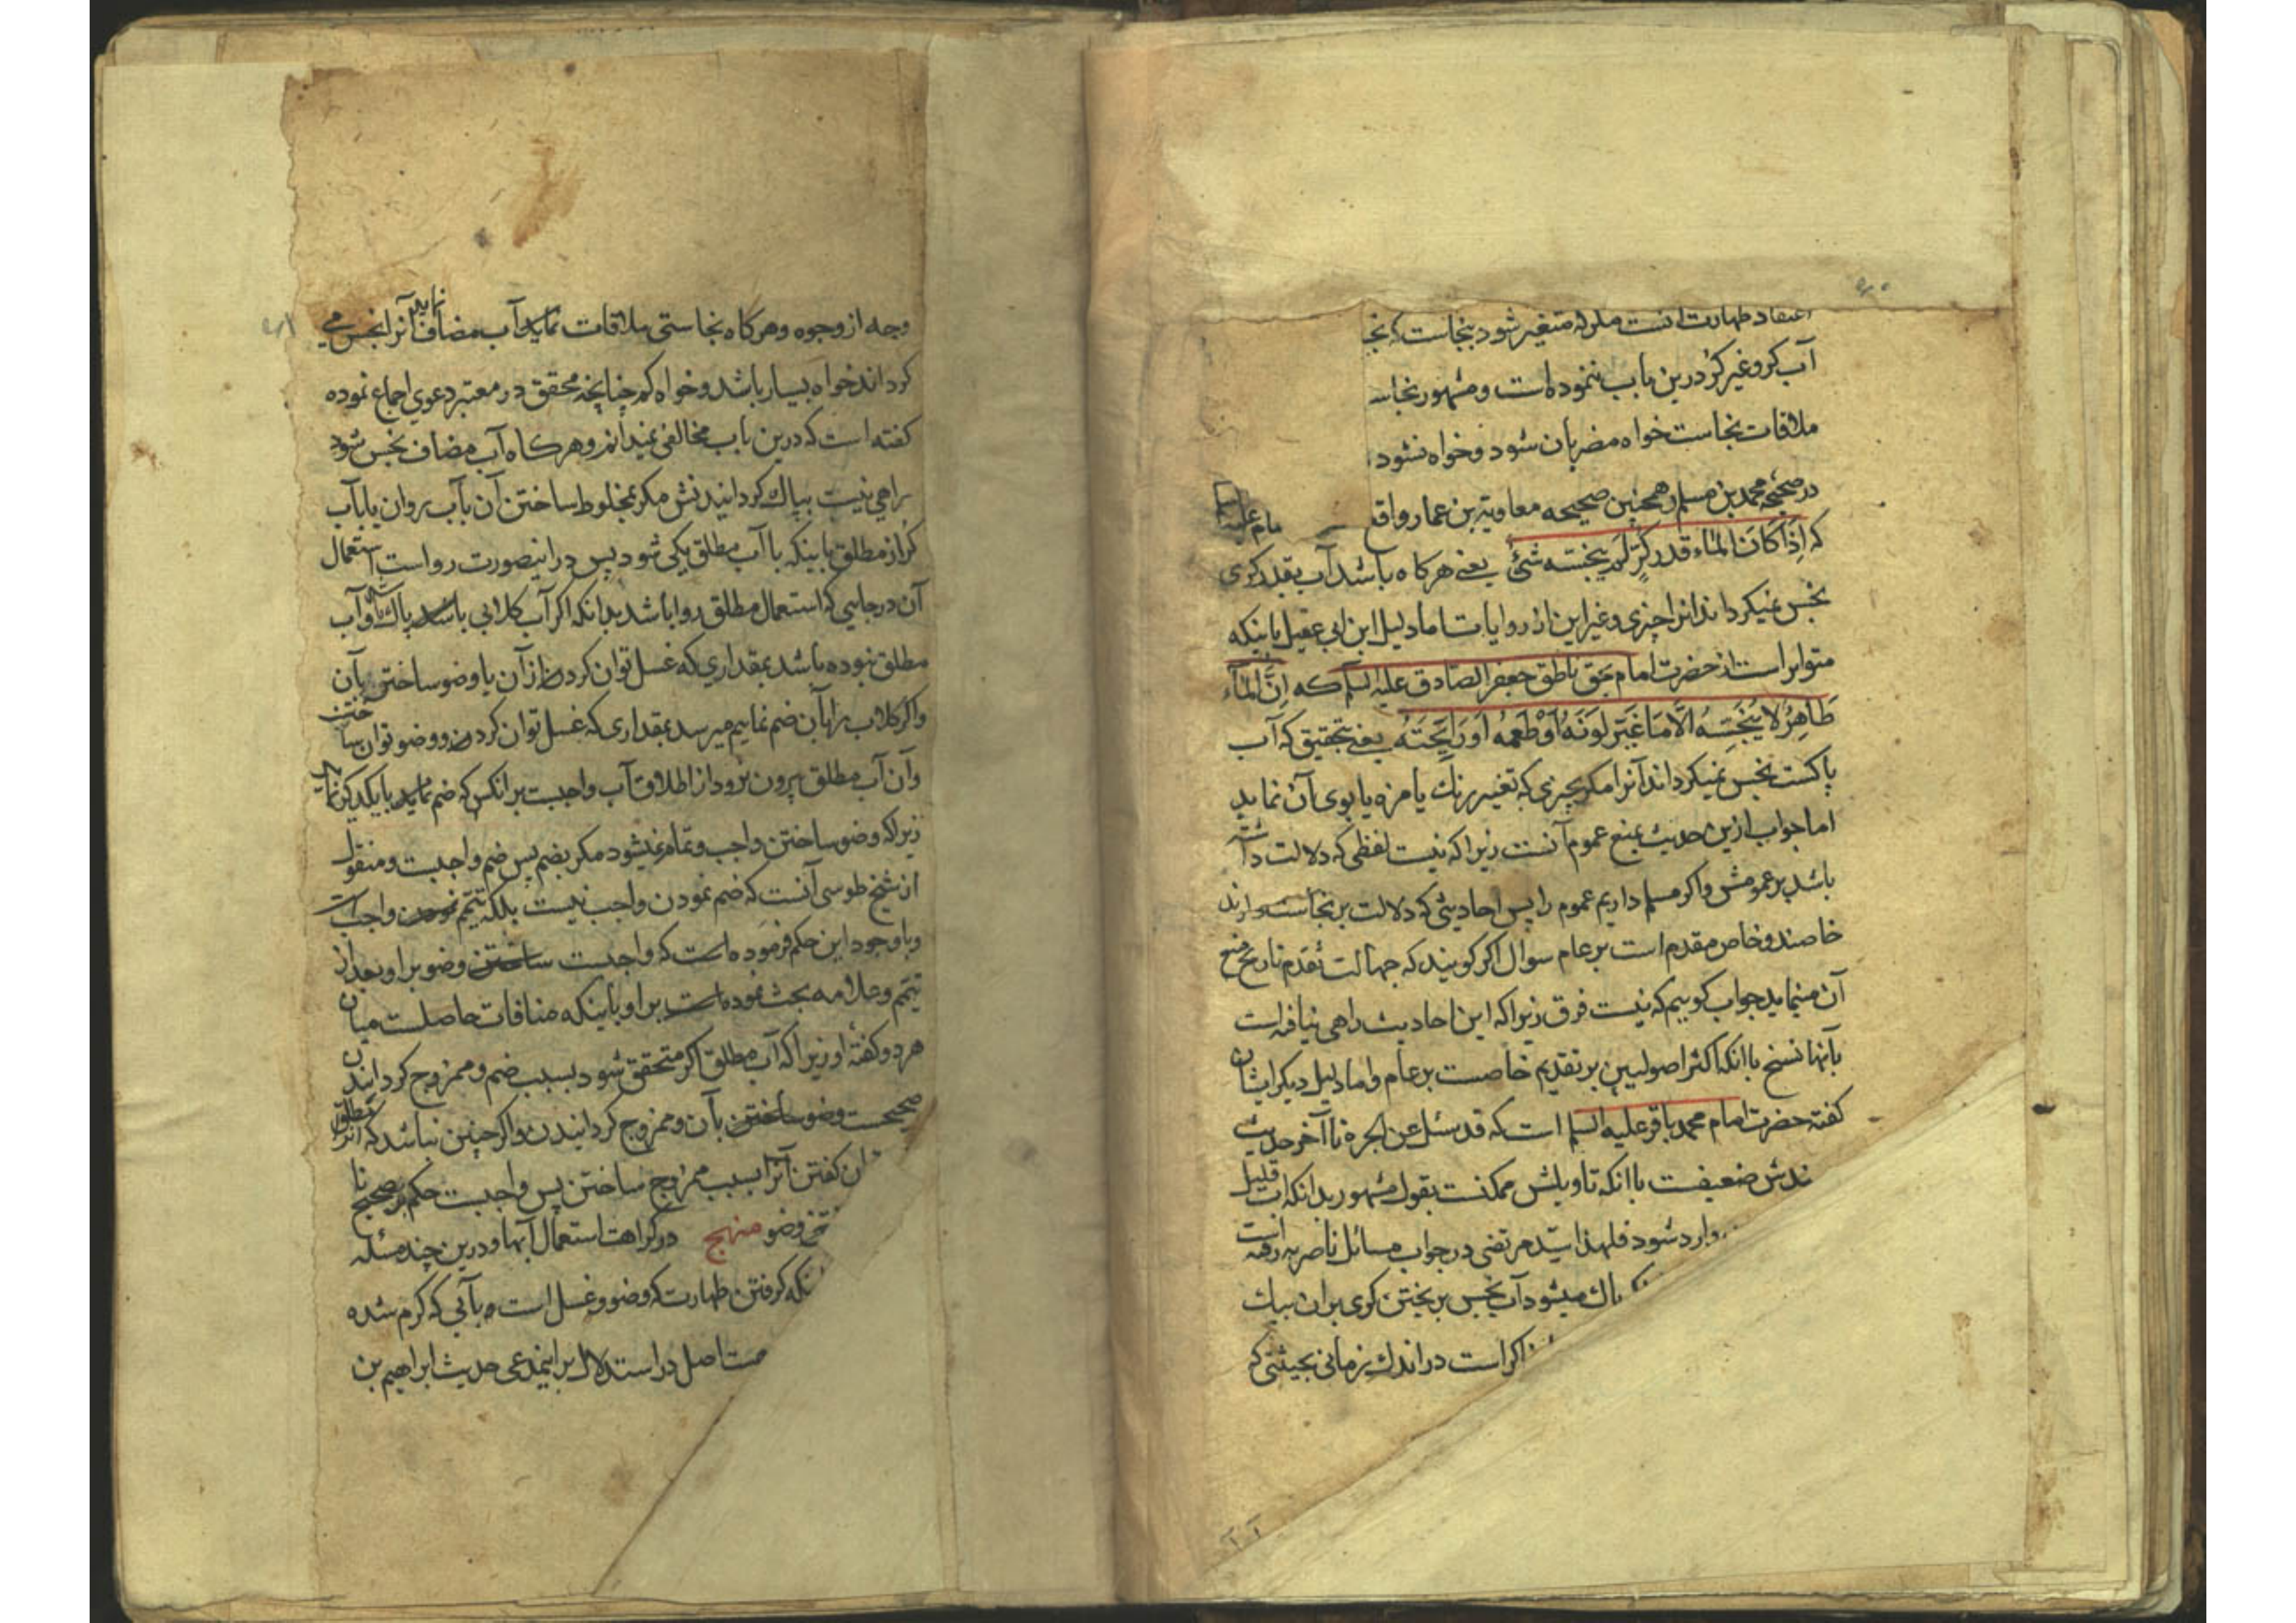 اعتقاد طهارت انست مادام که متغیر شود بنجاست که نجـ
آب کر و غیر کر درین باب ننموده است و مشهور نجاسـ
ملاقات نجاست خواه مضر بان شود و خواه نشود
در صحیحه محمد بن مسلم و همچنین صحیحه معاویة بن عمار واقـ امام علیه السلم
که اِذَا کَانَ المَاء قدر کُرٍّ لَم ینجّسه شَیٌٔ یعنی هر کاه باشد آب بقدر کری
نجس نمیکرداند انرا چیزی و غیر این از روایات اما دلیل ابن ابی عقیل باینکه
متواتر است از حضرت امام بحق ناطق جعفر الصّادق علیه السلم که اِنَّ المَآءَ
طَاهِرٌ لا یُنَجّسِهُ الاَّ مَا غَیَّر لَونَهُ اَوْ طَعمَهُ اَو رَایِحَتَهُ یعنی بتحقیق که آب
پاکست نجس نمیکرداند آنرا مکر چیزی که تغییر رنك یا مزه یا بوی آن نماید
اما جواب ازین حدیث بمنع عموم آنست زیرا که نیست لفظی که دلالت داشته
باشد بر عمومش و اکر مسلم داریم عموم را پس احادیثی که دلالت بر نجاست دارند
خاصند و خاص مقدم است بر عام سوال اکر کویند که جهالت تقدم تاریخ منع
آن مینماید جواب کوییم که نیست فرق زیرا که این احادیث راهی نیافته است
بآنها نسخ با انکه اکثر اصولیین بر تقدیم خاصست بر عام و اما دلیل دیکر ایشان
کفته حضرت امام محمد باقر علیه السلم است که قد سئل عن الجره تا آخر حدیث
ندش ضعیفست با انکه تاویلش ممکنست بقول مشهور بدانکه اب قلیل
وارد شود فلهذا سیّد مرتضی در جواب مسائل ناصریه رفته است
پاك میشود آب نجس بریختن کری بران بیك
اکر است در اندك زمانی بحیثتی که
وجه از وجوه و هر کاه نجاستی ملاقات نماید آب مضاف نماید آنرا نجس می
کرداند خواه بسیار باشد و خواه کم چنانچه محقق در معتبر دعوی اجماع نموده
کفته است که درین باب مخالفی نمیدانم و هر کاه آب مضاف نجس شود
راهی نیست بپاك کردانیدنش مکر بمخلوط ساختن آن بآب روان یا بآب
کُر از مطلق باینکه با آب مطلق یکی شود پس درانصورت رواست استعمال
آن در جایی که استعمال مطلق روا باشد بدانکه اکر آب کلابی باشد پاك و آب
مطلق نبوده باشد بمقداری که غسل توان کردن از آن یا وضو ساختن بآن
و اکر کلاب را بآن ضم نماییم میرسد بمقداری که غسل توان کردن و وضو توان ساختن
و آن آب مطلق بیرون نرود از اطلاق آب واجبست بر انکس که ضم نماید با یکدیکر نماید
زیرا که وضو ساختن واجب و تمام نمیشود مکر بضم پس ضم واجبست و منقول
از شیخ طوسی آنست که ضم نمودن واجب نیست بلکه تیمّم نمودن واجب است
و با وجود این حکم فرموده است که واجبست ساختن وضو بر او بعد از
تیمّم و علامه بحث نموده است بر او باینکه منافات حاصلست میان
هر دو کفتهٔ او زیرا که آب مطلق اکر متحقق شود بسبب ضم و ممزوج کردانیدن
صحیحست وضو ساختن بآن و ممزوج کردانیدن و اکر چنین نباشد که انرا مطلق
ان کفتن آنرا بسبب ممزوج ساختن پس واجبست حکم بر صحیح نا
ختن وضو منهج در کراهت استعمال آبها و درین چند مسئله
نکه کرفتن طهارت که وضو و غسل است و بآبی که کرم شده
ست اصل در استدلال بر اینمدعی حدیث ابراهیم بن